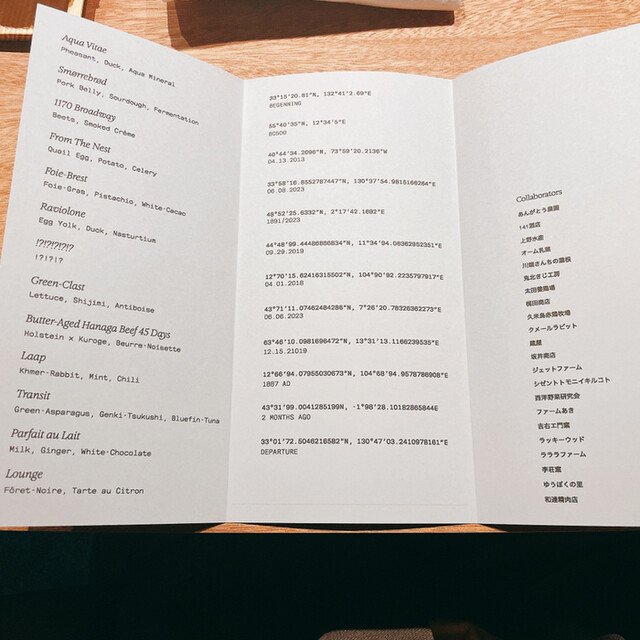 Aqua Vitae
Pheasant, Duck, Aqua Mineral
Smørrebrød
Pork Belly, Sourdough, Fermentation
1170 Broadway
Beets, Smoked Crème
From The Nest
Quail Egg, Potato, Celery
Foie-Brest
Foie-Gras, Pistachio, White-Cacao
Raviolone
Egg Yolk, Duck, Nasturtium
!?!?!?!?!?
!?!?!?
Green-Clast
Lettuce, Shijimi, Antiboise
Butter-Aged Hanaga Beef 45 Days
Holstein x Kuroge, Beurre-Noisette
Laap
Khmer-Rabbit, Mint, Chili
Transit
Green-Asparagus, Genki-Tsukushi, Bluefin-Tuna
Parfait au Lait
Milk, Ginger, White-Chocolate
Lounge
Fôret-Noire, Tarte au Citron
33°15'20.81"N, 132°41'2.69"E
BEGENNING
55°40'35"N, 12°34'5"E
BC500
40°44'34.2096"N, 73°59'20.2136"W
04.13.2013
33°58'16.8552787447"N, 130°37'54.9815166284"E
06.08.2023
48°52'25.6332"N, 2°17'42.1692"E
1891/2023
44°48'99.44486886834"N, 11°34'94.06362952351"E
09.29.2019
12°70'15.62416315502"N, 104°90'92.2235797917"E
04.01.2018
43°71'11.07462484286"N, 7°26'20.78326362273"E
06.06.2023
63°46'10.0981696472"N, 13°31'13.1166239535"E
12.15.21019
12°66'94.07955030673"N, 104°68'94.9578786908"E
1887 AD
43°31'99.0041285199N, -1°98'28.10182865844E
2 MONTHS AGO
33°01'72.5046216582"N, 130°47'03.2410978161"E
DEPARTURE
Collaborators
あんがとう農園
141酒店
上野水産
オーム乳業
川端さんちの猟根
鬼北きじ工房
太田養鶏場
梶田商店
久米島赤鶏牧場
クメールラビット
蔵屋
坂井商店
ジェットファーム
シゼントトモニイキルコト
西洋野菜研究会
ファームあき
古右エ門窯
ラッキーウッド
ラララファーム
李荘窯
ゆうぼくの里
和速精肉店